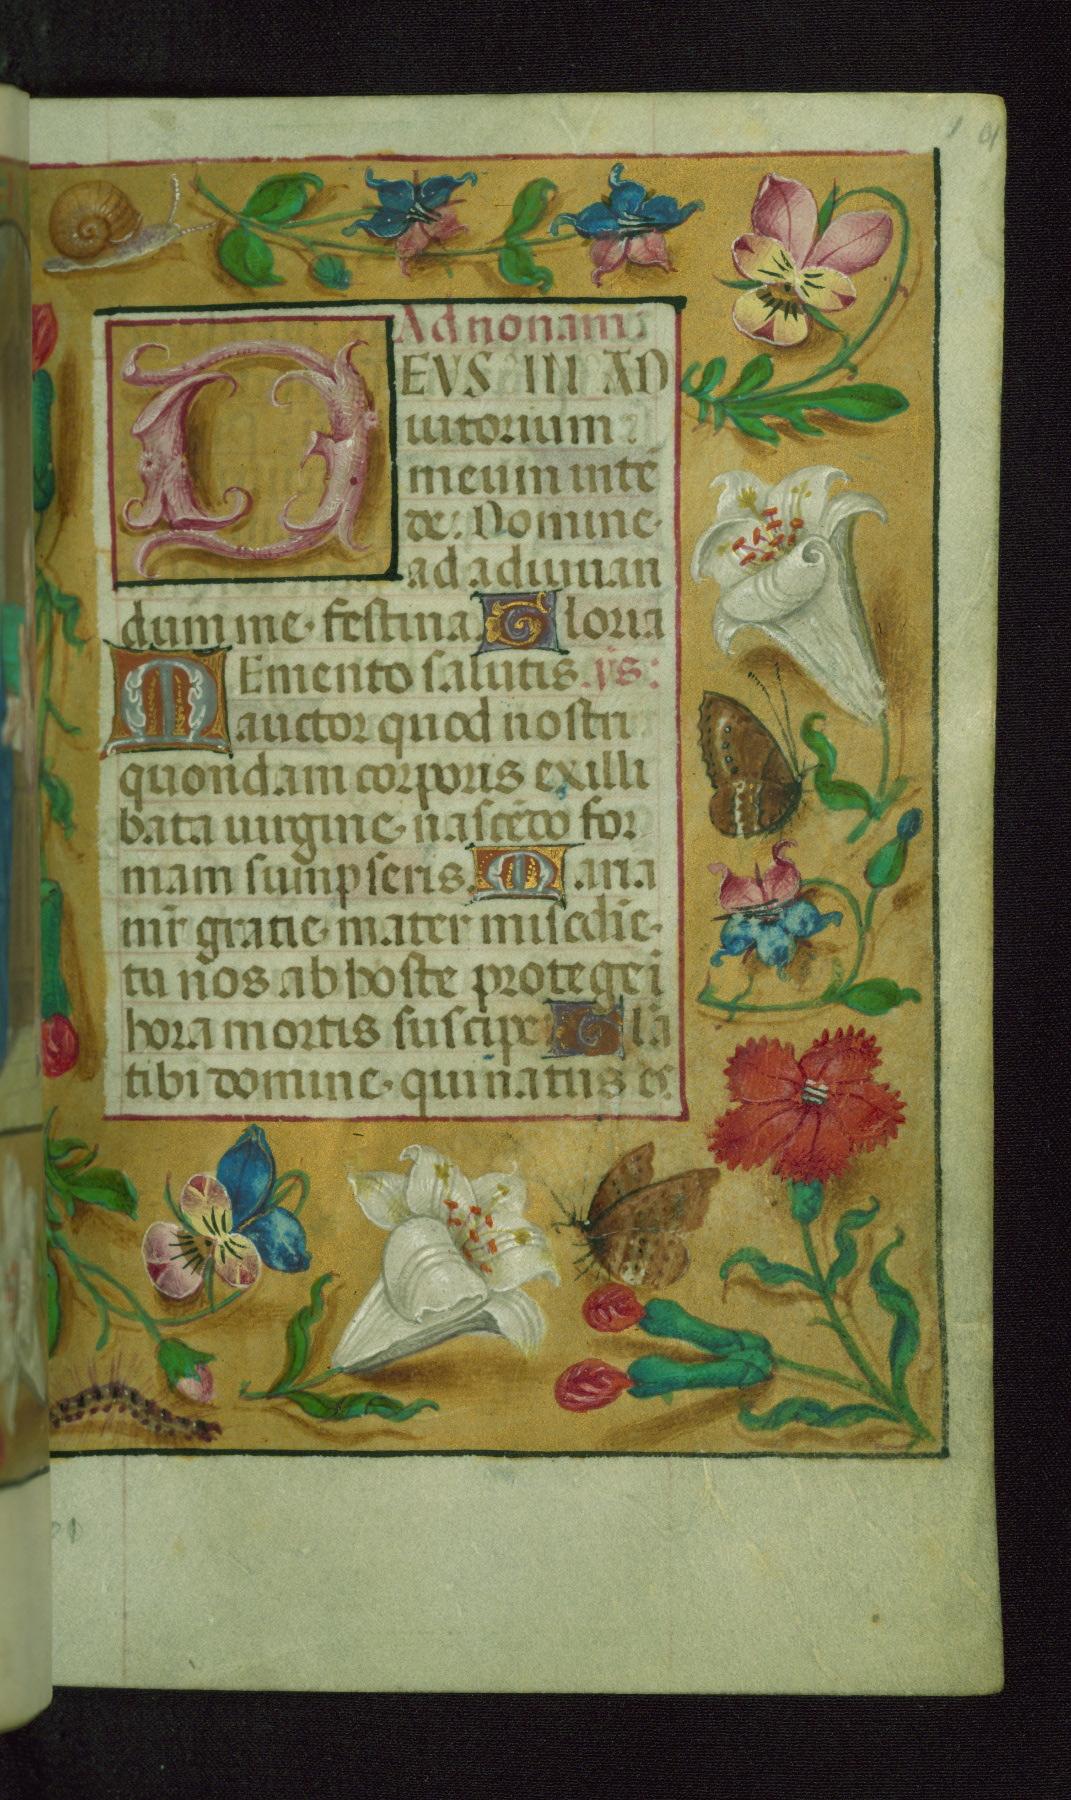 Ad nonam:
DEVS IN AD
iutorium
meum intē
de: Domine
ad adiuuan
dum me festina Gloria
Memento salutis ys:
auctor quod nostri
quondam corporis ex illi
bata uirgine nascēdo for
mam sumpseris. Maria
mr̄ gratie mater misc̄die
tu nos ab hoste protege ī
hora mortis suscipe Gl̄a
tibi domine qui natus es